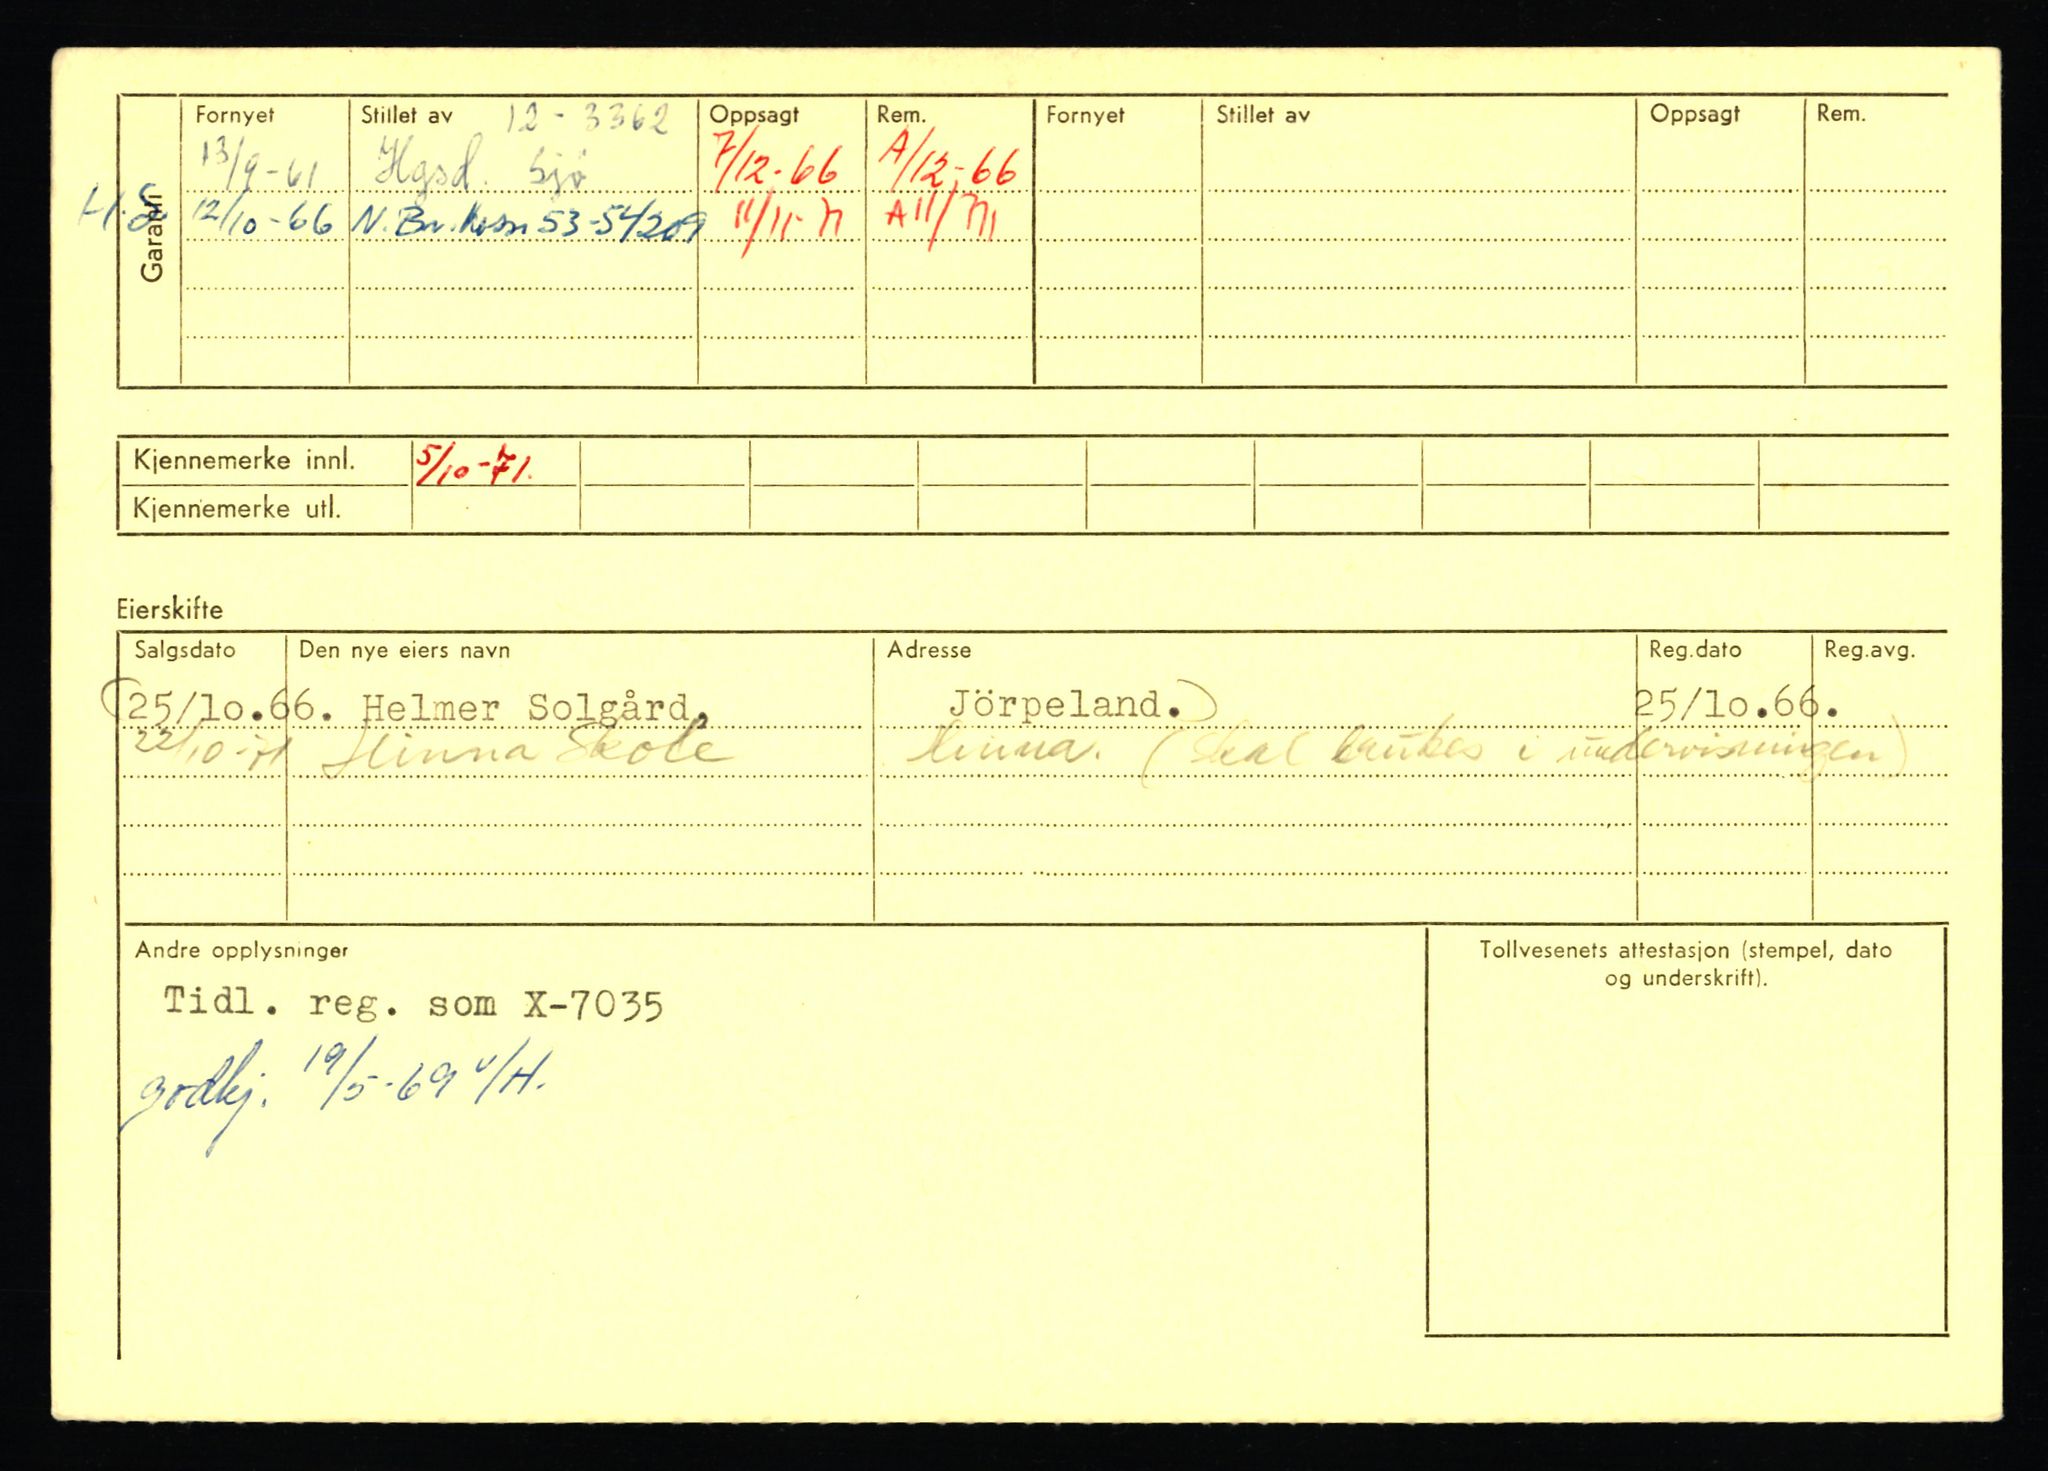 Garanti
Fornyet Stillet av 12-3362 Oppsagt Rem. Fornyet Stillet av Oppsagt Rem.
13/9-61 Hgsd. Sjø 7/12-66 A/12-66
H.S. 12/10-66 N. Br. kasse 53-54209 11/11-71 A11/71
Kjennemerke innl. 5/10-71.
Kjennemerke utl.
Eierskifte
Salgsdato Den nye eiers navn Adresse Reg.dato Reg.avg.
(25/lo.66. Helmer Solgård. Jörpeland.) 25/lo.66.
22/10-71 Hinna Skole Hinna. (Skal brukes i undervisningen)
Andre opplysninger
Tidl. reg. som X-7035
godkj. 19/5-69 v/H.
Tollvesenets attestasjon (stempel, dato
og underskrift).